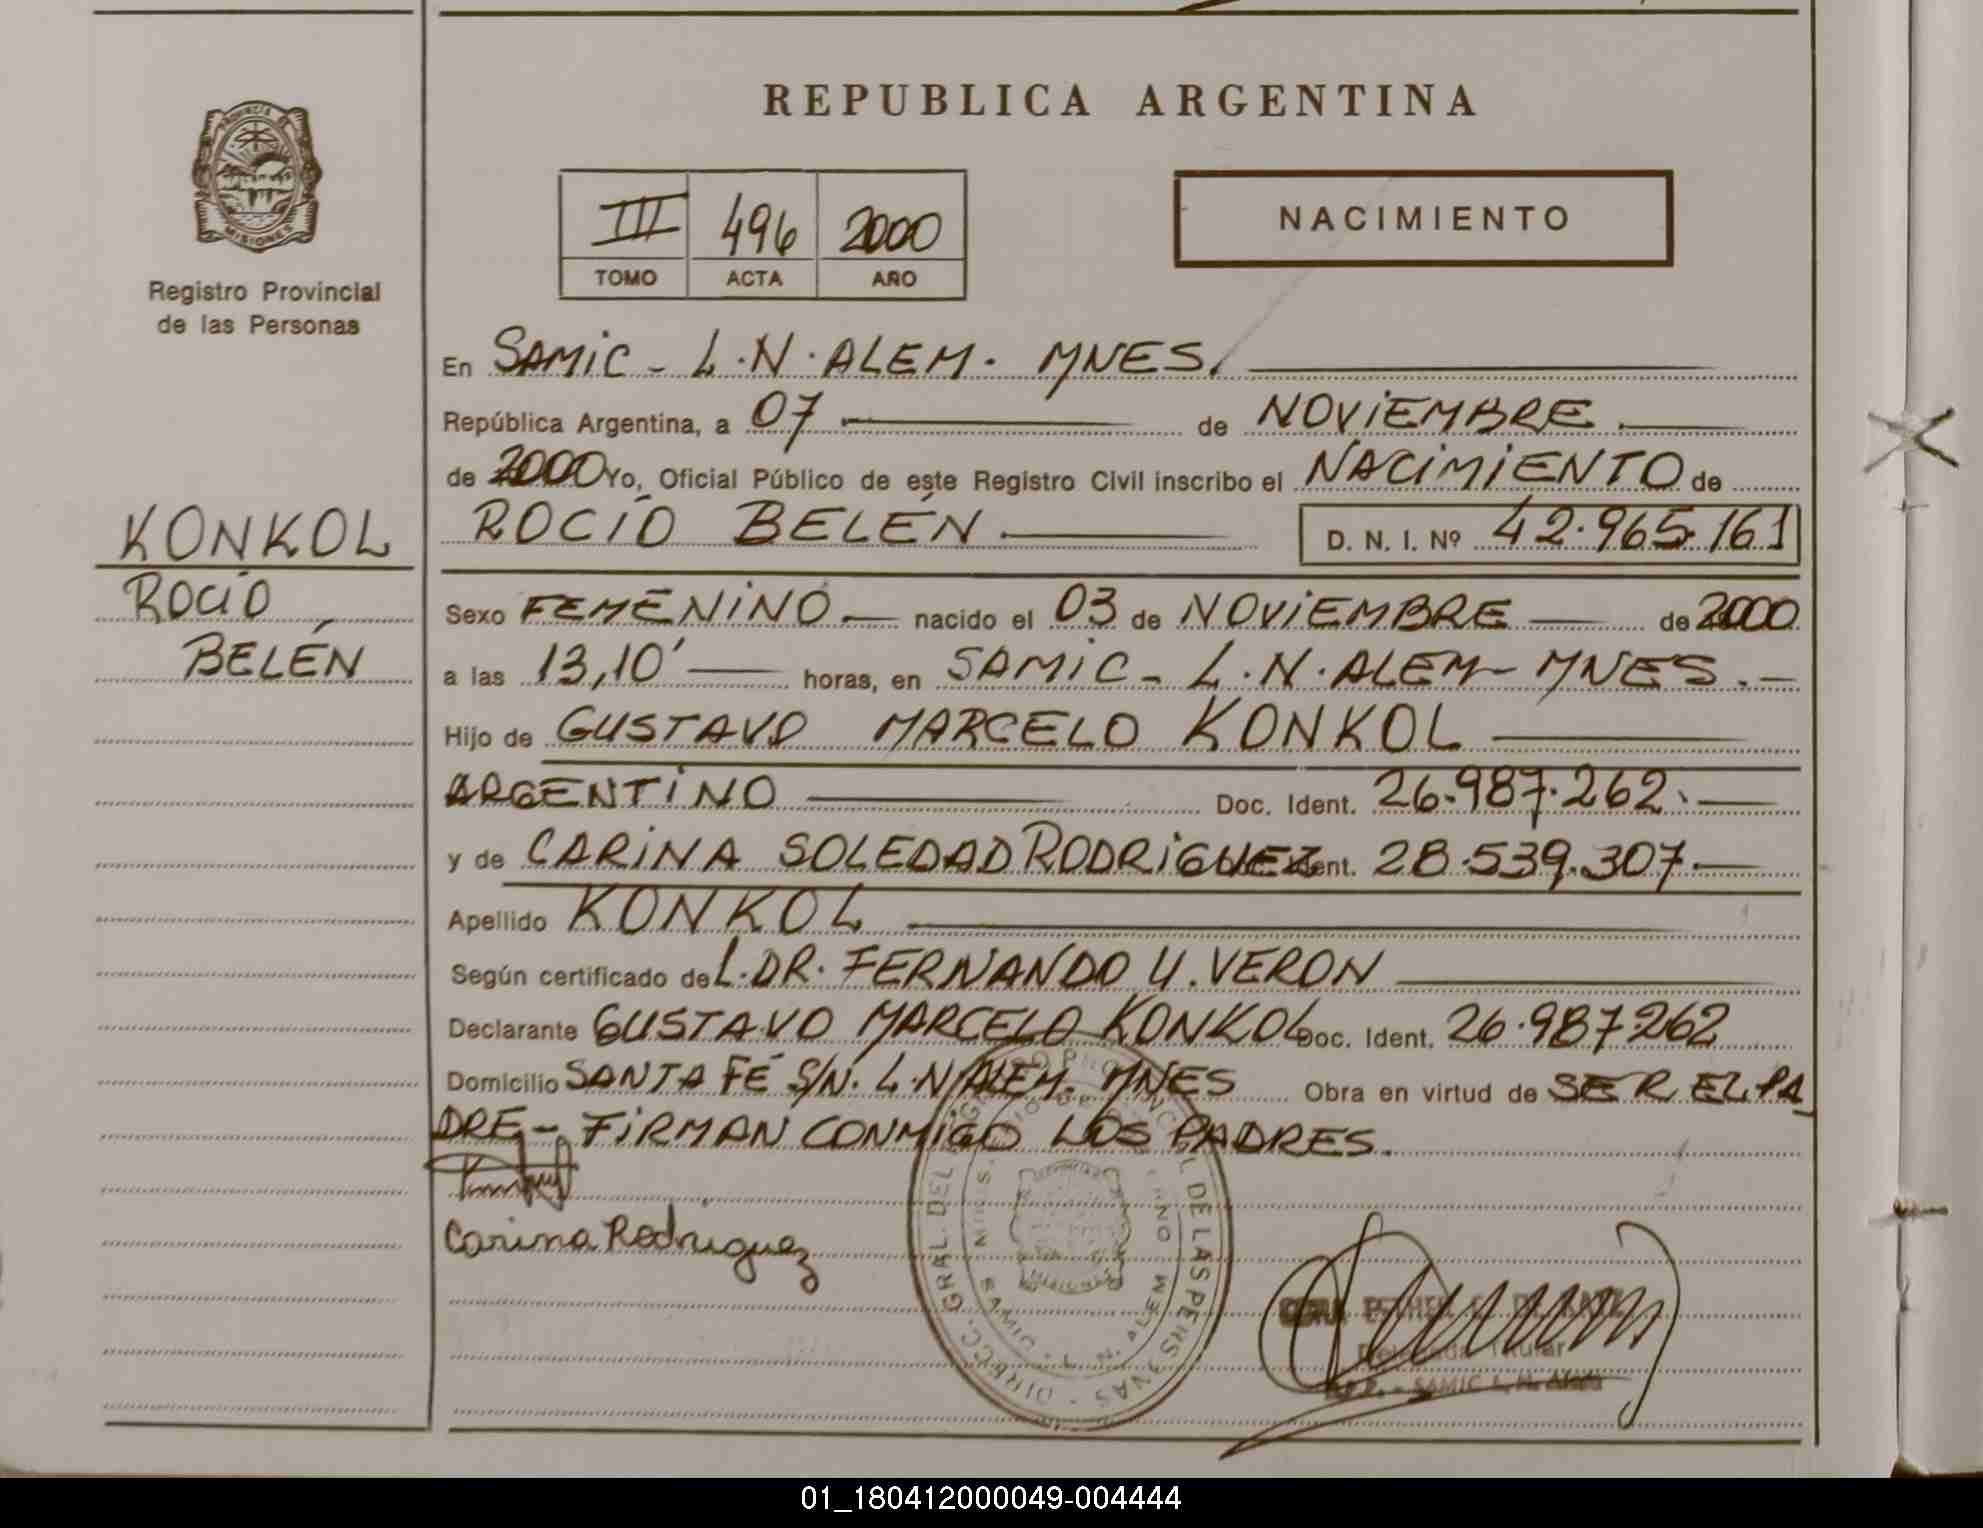 REPUBLICA ARGENTINA
PROVINCIA DE
MISIONES
Registro Provincial
de las Personas
III 496 2000
TOMO ACTA AÑO
NACIMIENTO
En SAMIC - L.N. ALEM. MNES.
República Argentina, a 07 de NOVIEMBRE
de 2000 Yo, Oficial Público de este Registro Civil inscribo el NACIMIENTO de
ROCÍO BELÉN D. N. I. Nº 42.965.161
KONKOL
ROCÍO
BELÉN
Sexo FEMENINO nacido el 03 de NOVIEMBRE de 2000
a las 13,10' horas, en SAMIC - L.N. ALEM - MNES.
Hijo de GUSTAVO MARCELO KONKOL
ARGENTINO Doc. Ident. 26.987.262.
y de CARINA SOLEDAD RODRIGUEZ Ident. 28.539.307.
Apellido KONKOL
Según certificado de L. DR. FERNANDO U. VERON
Declarante GUSTAVO MARCELO KONKOL Doc. Ident. 26.987.262
Domicilio SANTA FÉ S/N. L.N. ALEM. MNES Obra en virtud de SER EL PA
DRE - FIRMAN CONMIGO LOS PADRES.
Carina Rodriguez
DIRECC. GRAL. DEL REGISTRO PROVINCIAL DE LAS PERSONAS
SAMIC - L. N. ALEM
Delegada Titular
R.P.P. - SAMIC L. N. Alem
01_180412000049-004444